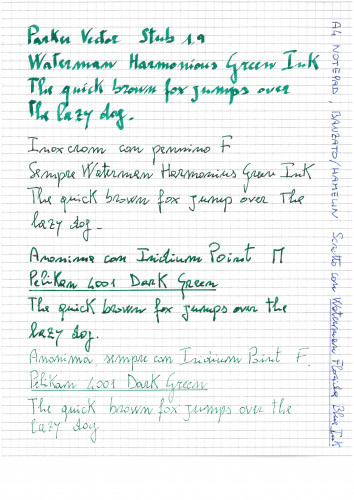 Parker Vector Stub 1.9
Waterman Harmonious Green Ink
The quick brown fox jumps over
the lazy dog.
Inoxcrom con pennino F
Sempre Waterman Harmonius Green Ink
The quick brown fox jump over the
lazy dog_
Anonima con Iridium Point M
Pelikan 4001 Dark Green
The quick brown fox jumps over the
lazy dog.
Anonima, sempre con Iridium Point F.
Pelikan 4001 Dark Green
The quick brown fox jumps over the
lazy dog
A4 NOTEPAD, BLASETO/HAMELIN Scritto con Waterman Florida Blue Ink